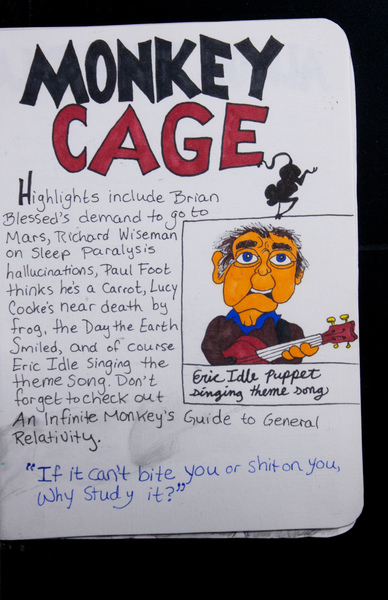 MONKEY
CAGE
Highlights include Brian
Blessed's demand to go to
Mars, Richard Wiseman
on Sleep Paralysis
hallucinations, Paul Foot
thinks he's a Carrot, Lucy
Cooke's near death by
frog, the Day the Earth
Smiled, and of course
Eric Idle Singing the
theme Song. Don't
forget to check out
An Infinite Monkey's Guide to General
Relativity.
Eric Idle Puppet
singing theme song
"If it can't bite you or shit on you,
Why Study it?"